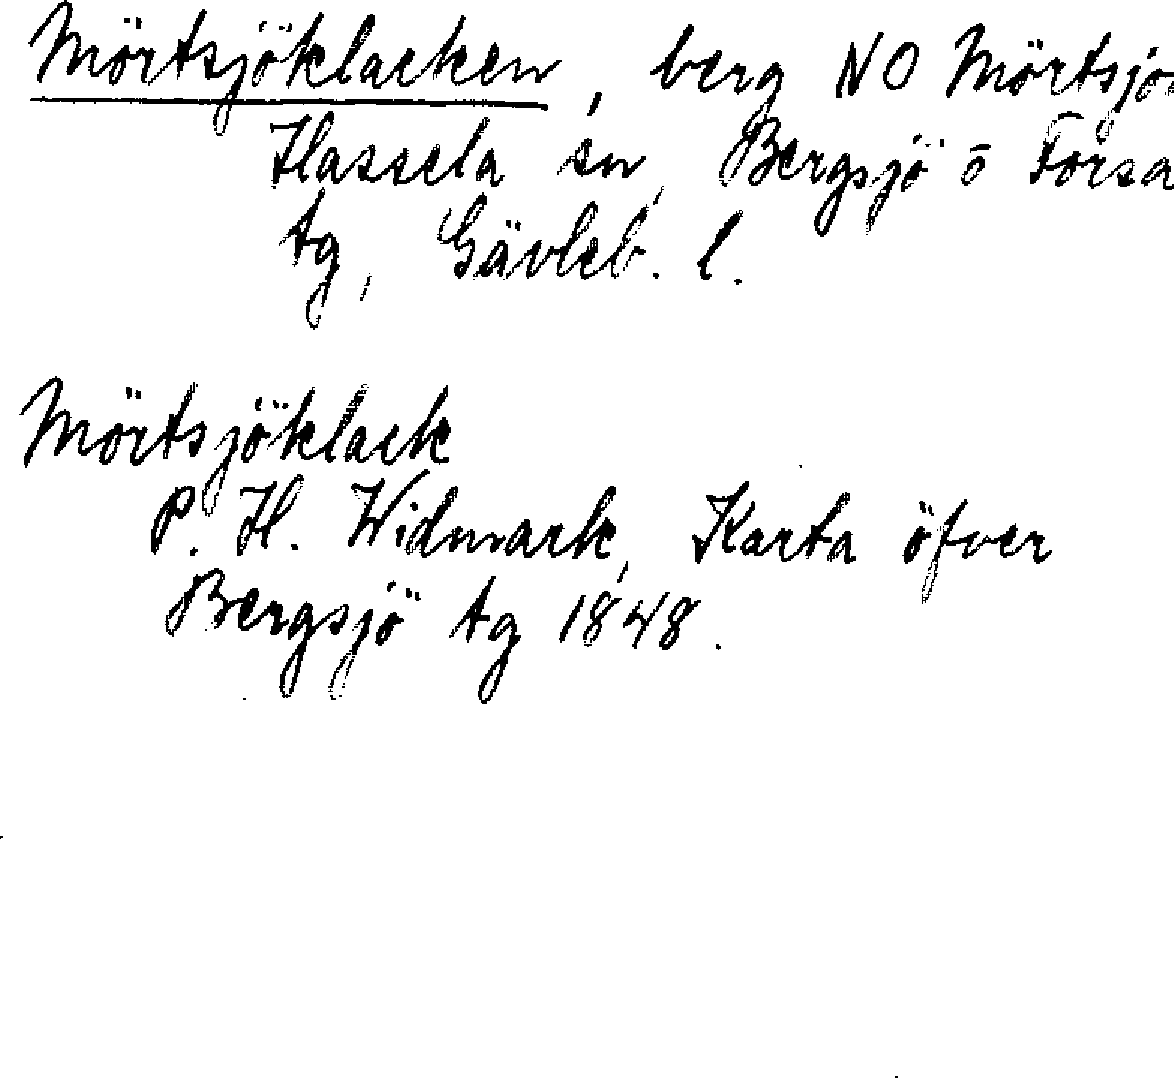 Mörtsjöklacken, berg NO Mörtsjön
Hassela sn, Bergsjö o Forsa
tg, Gävleb. l.
Mörtsjöklack
P. H. Widmark, Karta öfver
Bergsjö tg 1848.